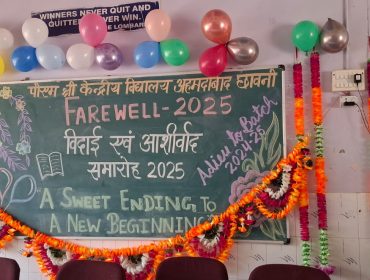 WINNERS NEVER QUIT AND
QUITTERS NEVER WIN.
LOMBARDI
पीएम श्री केन्द्रीय विद्यालय अहमदाबाद छावनी
FAREWELL-2025
विदाई एवं आशीर्वाद
समारोह 2025
Adieu to Batch
2024-25
A SWEET ENDING TO
A NEW BEGINNING